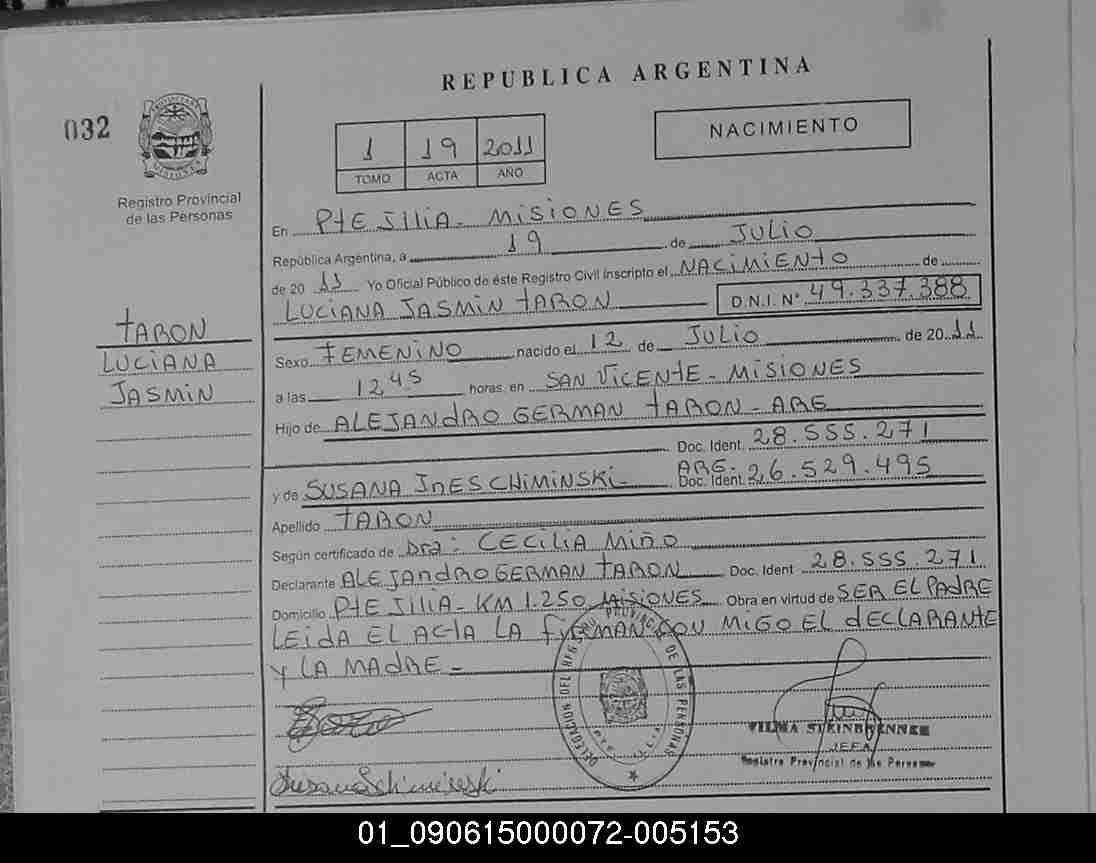 REPUBLICA ARGENTINA
032
PROVINCIA
MISIONES
Registro Provincial
de las Personas
1 19 2011
TOMO ACTA AÑO
NACIMIENTO
En PtE JLLIA - MISIONES
República Argentina, a 19 de JULIO
de 20 11 Yo Oficial Público de éste Registro Civil inscripto el NACIMIENTO de
LUCIANA JASMIN TARON D.N.I. N° 49.337.388
TARON
LUCIANA
JASMIN
Sexo FEMENINO nacido el 12 de JULIO de 20 11
a las 12 45 horas, en SAN VICENTE - MISIONES
Hijo de ALEJANDRO GERMAN TARON - ARG
Doc. Ident. 28.555.271
y de SUSANA INES CHIMINSKI - ARG. Doc. Ident. 26.529.495
Apellido TARON
Según certificado de Dra: CECILIA MIÑO
Declarante ALEJANDRO GERMAN TARON Doc. Ident 28.555.271
Domicilio PtE ILLIA - KM 1.250 MISIONES Obra en virtud de SER EL PADRE
LEIDA EL ACTA LA FIRMAN CON MIGO EL DECLARANTE
Y LA MADRE -
DELEGACION DEL REG PROVINCIAL DE LAS PERSONAS
VILMA STEINBRENNER
JEFA
Registro Provincial de las Personas
01_090615000072-005153